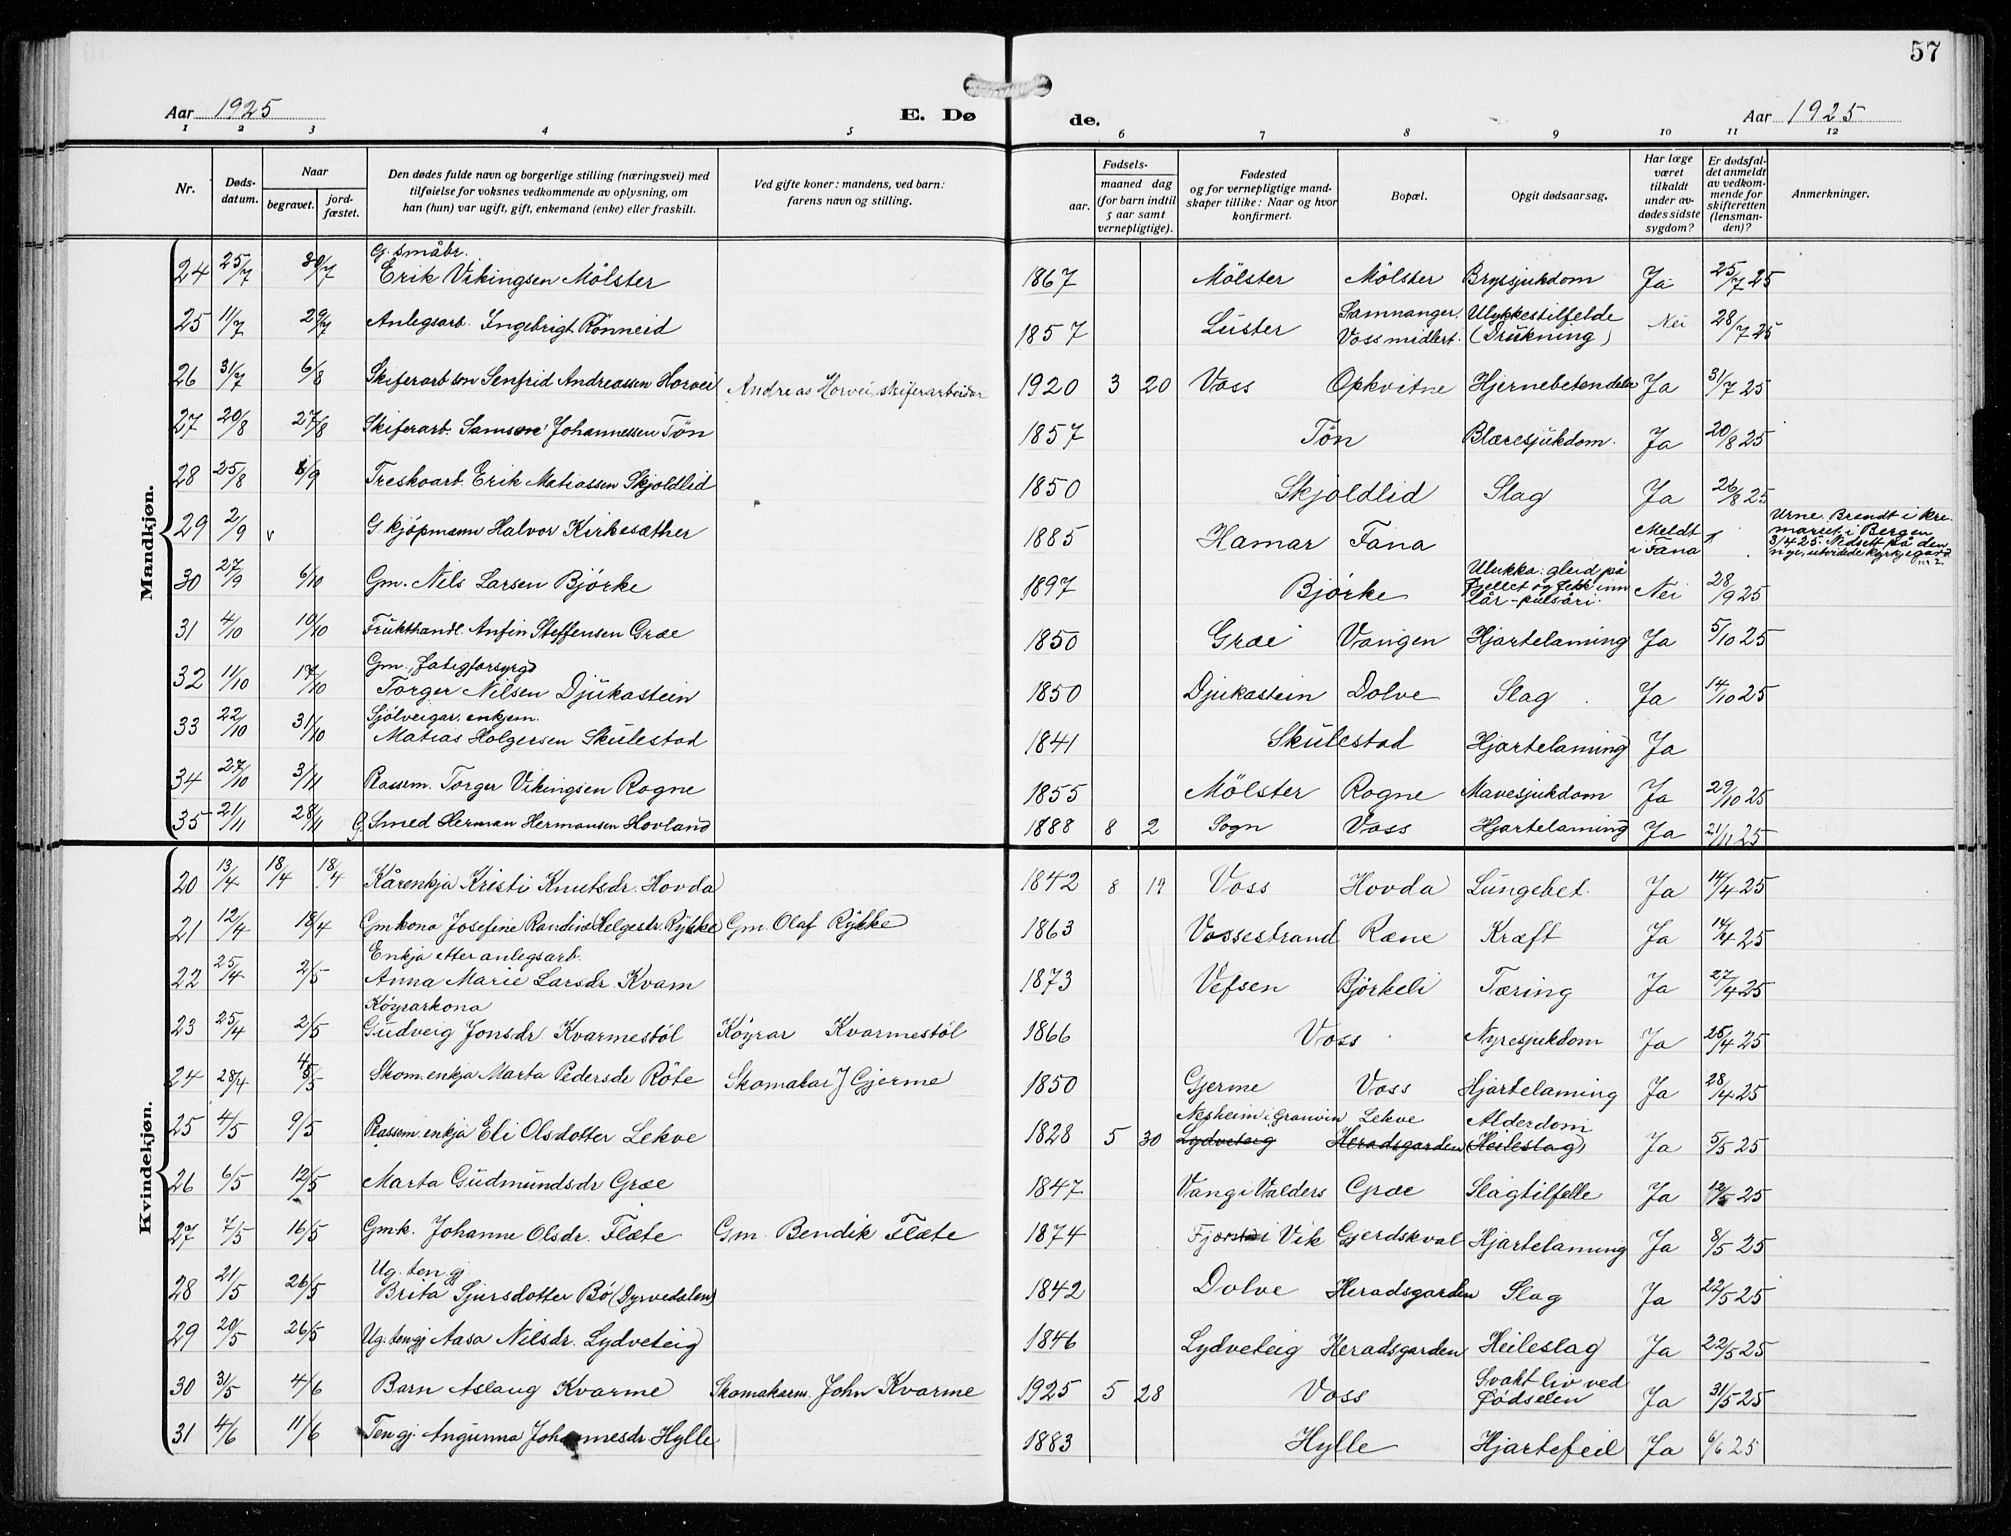 57
Aar 1925
E. Dø
de.
Aar 1925
1 2 3 4 5 6 7 8 9 10 11 12
Nr.
Døds-
datum.
Naar
begravet.
jord-
fæstet.
Den dødes fulde navn og borgerlige stilling (næringsvei) med
tilføielse for voksnes vedkommende av oplysning, om
han (hun) var ugift, gift, enkemand (enke) eller fraskilt.
Ved gifte koner: mandens, ved barn:
farens navn og stilling.
Fødsels-
aar.
maaned dag
(for barn indtil
5 aar samt
vernepligtige).
Fødested
og for vernepligtige mand-
skaper tillike: Naar og hvor
konfirmert.
Bopæl.
Opgit dødsaarsag.
Har læge
været
tilkaldt
under av-
dødes sidste
sygdom?
Er dødsfal-
det anmeldt
av vedkom-
mende for
skifteretten
(lensman-
den)?
Anmerkninger.
Mandkjøn.
G. småbr.
24 25/7 30/7 Erik Vikingsen Mölster 1867 Mölster Mölster Brysjukdom Ja 25/7 25
25 11/7 29/7 Anlegsarb. Ingebrigt Rönneid 1857 Luster Samnanger. Voss midlert. Ulykkestilfelde (Drukning) Nei 28/7 25
26 31/7 6/8 Skiferarb son Senfrid Andreassen Horvei Andreas Horvei, skiferarbeidar 1920 3 20 Voss Opkvitne Hjernebetendelse Ja 31/7 25
27 20/8 27/8 Skiferarb. Samson Johannessen Tön 1857 Tön Blæresjukdom. Ja 20/8 25
28 25/8 1/9 Treskoarb. Erik Matiassen Skjoldlid 1850 Skjoldlid Slag Ja 26/8 25
29 2/9 v G kjöpmann Halvor Kirkesæther 1885 Hamar Fana Meldt i Fana Urne. Brendt i kre-
mariet i Bergen
3/4 25. Nedsett på den
nye, utvidede kyrkjegard
nr 2
30 27/9 6/10 Gm. Nils Larsen Björke 1897 Björke Ulukka: gleid på
fjellet og fekk inn
lår-pulsåri. Nei 28/9 25
31 4/10 10/10 Frukthandl. Anfin Steffensen Græe 1850 Græe Vangen Hjartelaming Ja 5/10 25
Gm., fatigforsyrgd
32 11/10 17/10 Torger Nilsen Djukastein 1850 Djukastein Dolve Slag Ja 14/10 25
Sjölveigar, enkjem.
33 22/10 31/10 Matias Holgersen Skulestad 1841 Skulestad Hjartelaming Ja
34 27/10 3/11 Plassem. Torger Vikingsen Rogne 1855 Mölster Rogne Mavesjukdom Ja 29/10 25
35 21/11 28/11 G Smed Herman Hermansen Hovland 1888 8 2 Sogn Voss Hjartelaming Ja 21/11 25
Kvindekjøn.
20 13/4 18/4 18/4 Kårenkja Kristi Knutsdr. Hovda 1842 8 19 Voss Hovda Lungebet. Ja 14/4 25
21 12/4 18/4 Gmkona Josefine Randine Helgestr. Rykke Gm. Olaf Rykke 1863 Vossestrand Ræne Kræft Ja 14/4 25
Enkja etter anlegsarb.
22 25/4 2/5 Anna Marie Larsdr. Kvam 1873 Vefsen Björkeli Tæring Ja 27/4 25
Köyrarkona
23 25/4 2/5 Gudveig Jonsdr. Kvarmestöl Köyrar Kvarmestöl 1866 Voss Nyresjukdom Ja 25/4 25
24 28/4 5/5 Skom. enkja Marta Pedersdr Röte Skomakar J Gjerme 1850 Gjerme Voss Hjartelaming Ja 28/4 25
Nesheim i Granvin Lekve Alderdom
25 4/5 9/5 Plassem. enkja Eli Olsdotter Lekve 1828 5 30 Lydveteig Heradsgarden (Heileslag) Ja 5/5 25
26 6/5 12/5 Marta Gudmundsdr Græe 1847 Vang i Valders Græe Slagtilfelle Ja 12/5 25
27 7/5 16/5 Gmk. Johanne Olsdr. Flæte Gm. Bendik Flæte 1874 Vik Gjerdskval Hjartelaming Ja 8/5 25
Ug. ten. gj.
28 21/5 26/5 Brita Sjursdotter Bö (Dyrvedalen) 1842 Dolve Heradsgarden Slag Ja 22/5 25
29 20/5 26/5 Ug. tengj Aasa Nilsdr. Lydveteig 1846 Lydveteig Heradsgarden Heileslag Ja 22/5 25
30 31/5 4/6 Barn Aslaug Kvarme Skomakarm. John Kvarme 1925 5 28 Voss Svakt liv ved
födselen Ja 31/5 25
31 4/6 11/6 Ten gj. Angunna Johannesdr Hylle 1883 Hylle Hjartefeil Ja 6/6 25